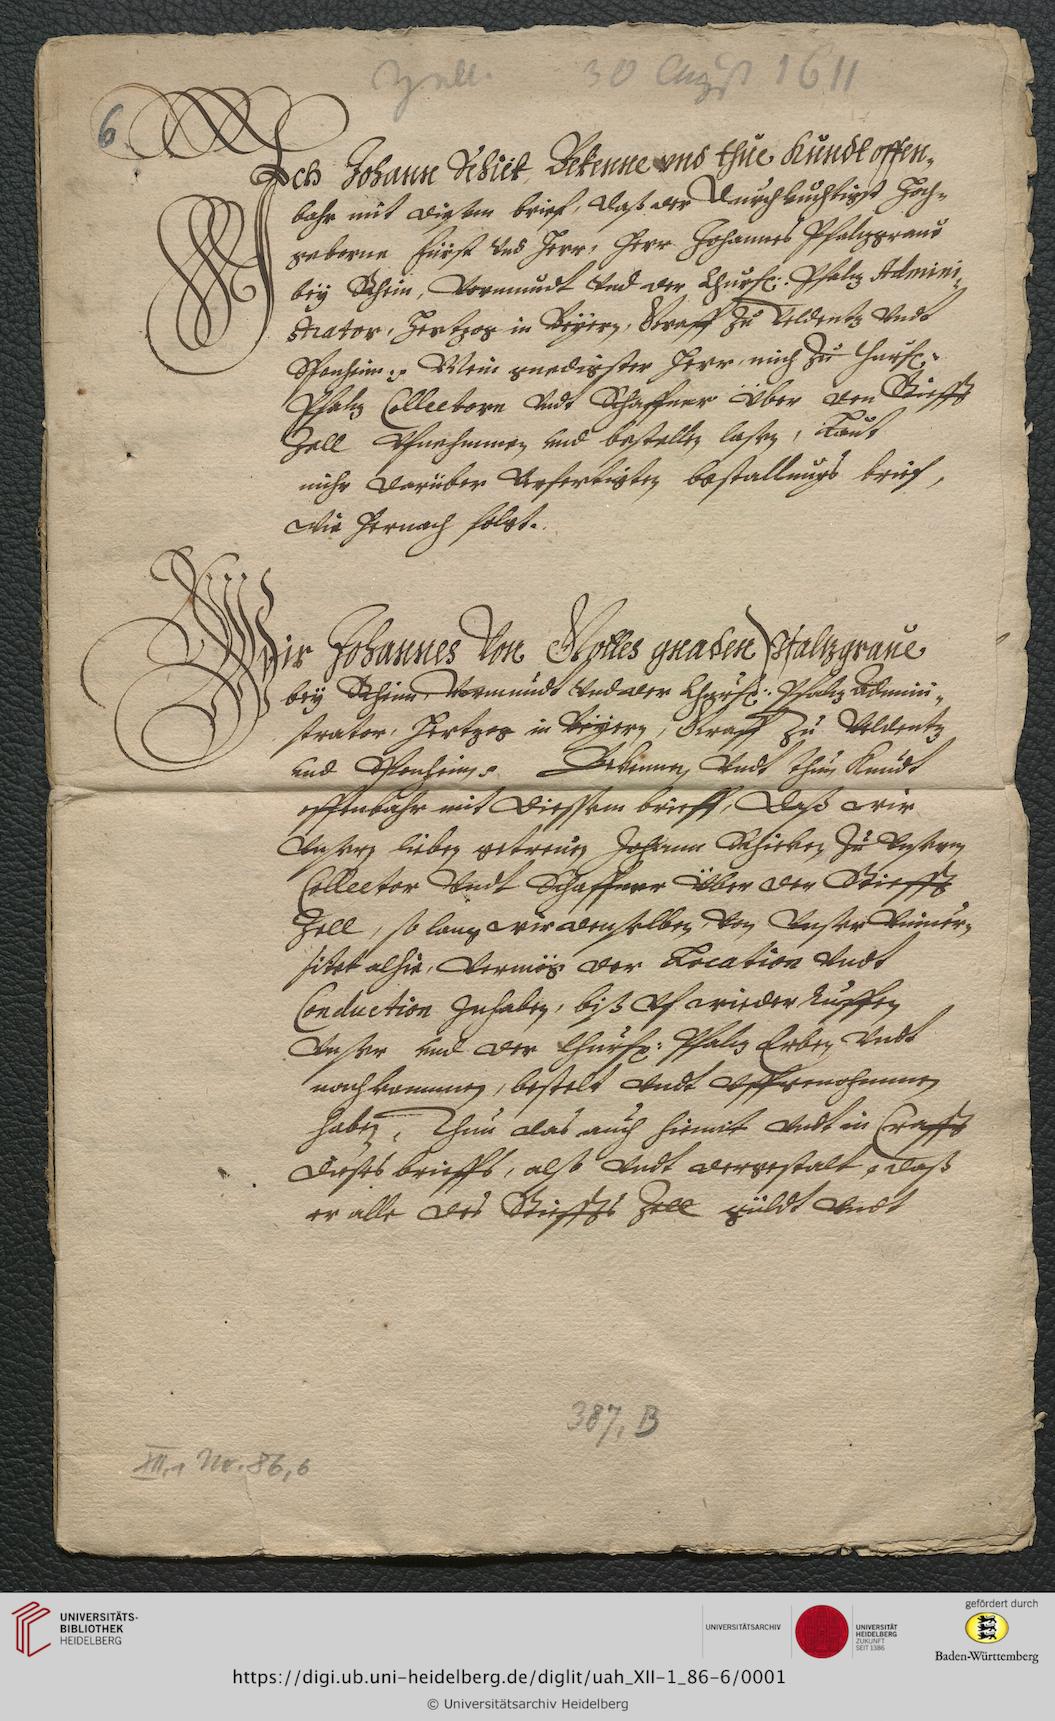 Zell. 30 August 1611
6
Ich Johann Schick, Bekenne vnd thue Kundt offen-
bahr mit diesem brief, daß der Durchleuchtigst Hoch-
geborne Fürst vnd Herr, Herr Johannes Pfaltzgraue
bey Rhein, Vormundt vnd der Churf: Pfaltz Admini-
strator, Hertzog in Beyern, Graff zu Veldentz vndt
Sponheim, Mein gnedigster Herr, mich zu Churf:
Pfaltz Collectorn vndt Schaffner über den Stiefft
Zell vfnehmmen vnd bestellen lassen, Laut
mihr darüber verfertigten bestallungs brief,
wie hernach folgt.
Wir Johannes Von Gottes gnaden Pfaltzgraue
bey Rhein, Vormundt vnd der Churf: Pfaltz Admini-
strator, Hertzog in Beyern, Graff zu Veldentz
vnd Sponheim. Bekennen vndt thun Kundt
offenbahr mit diessem brieff, Daß wir
vnsern lieben getreuen Johann Schicken zu vnserm
Collector vndt Schaffner über den Stiefft
Zell, so lang wir denselben, von vnser Vniuer-
sitet alhie, vermög der Location vndt
Conduction Inhaben, biß vf wieder Ruffen
vnser vnd der Churf: Pfaltz Erben vndt
nachkommen, bestelt vndt vffgenohmmen
haben, Thun das auch hiemit vndt in Crafft
dieses brieffs, also vndt dergestalt, daß
er alle des Stieffts Zell güldt vndt
387, B
XII,1 Nr. 86,6
UNIVERSITÄTS-
BIBLIOTHEK
HEIDELBERG
UNIVERSITÄTSARCHIV
UNIVERSITÄT
HEIDELBERG
ZUKUNFT
SEIT 1386
gefördert durch
Baden-Württemberg
https://digi.ub.uni-heidelberg.de/diglit/uah_XII-1_86-6/0001
© Universitätsarchiv Heidelberg